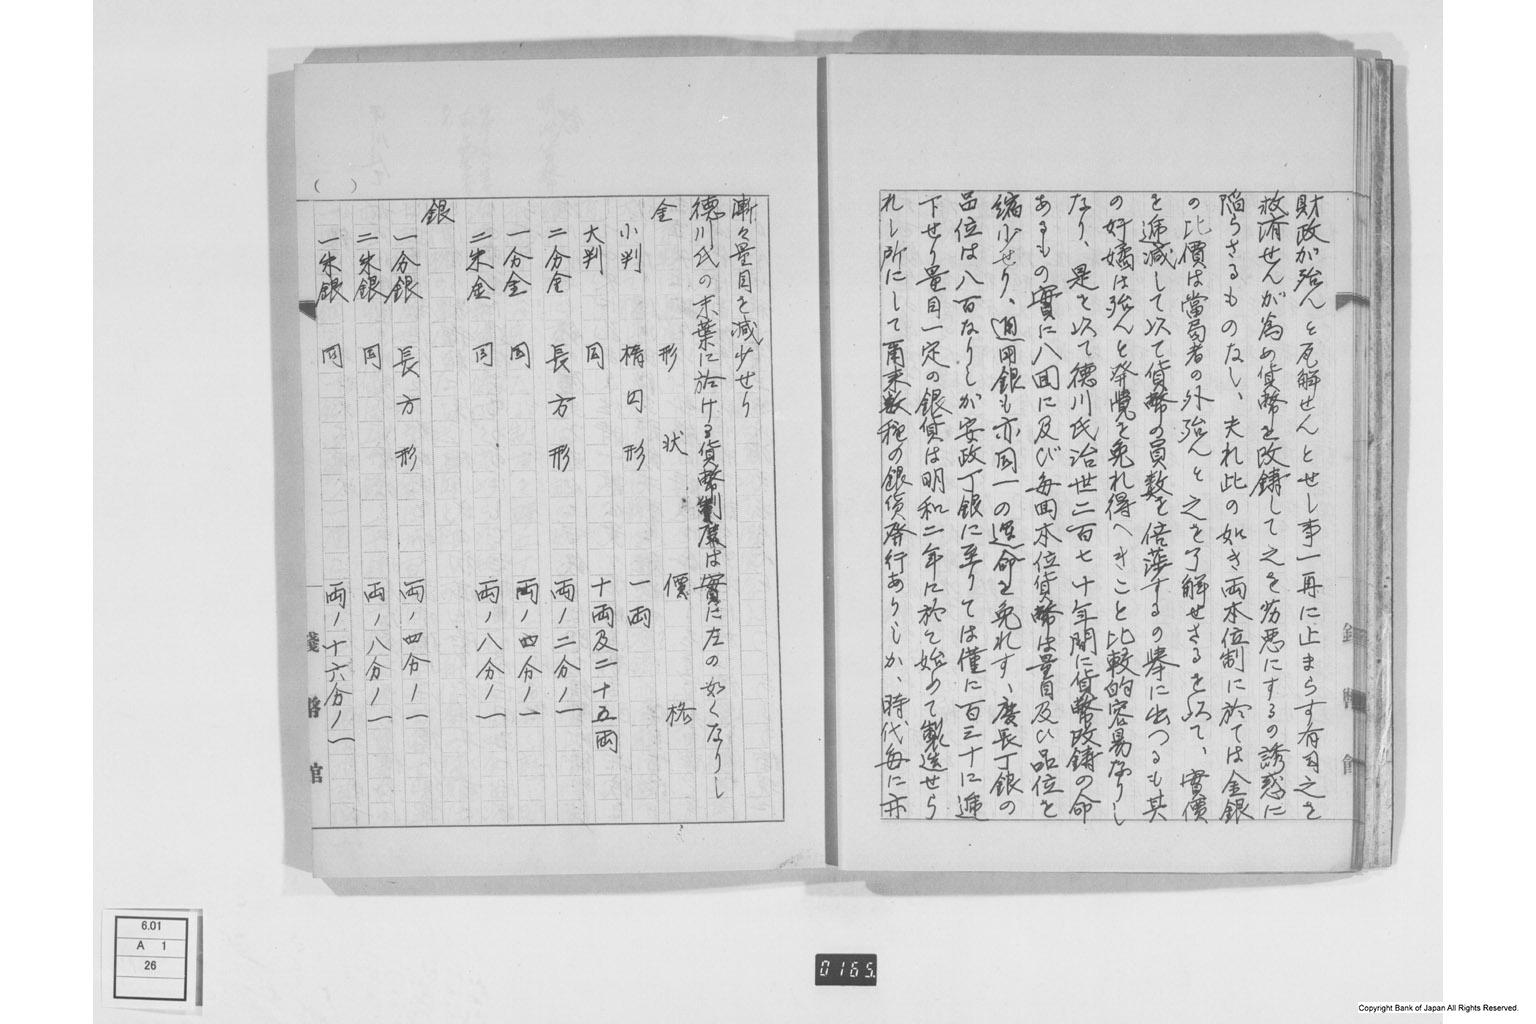 財政が殆んと瓦解せんとせし事一再に止まらす有司之を
救済せんが為め貨幣を改鋳して之を劣悪にするの誘惑に
陥らさるものなし、夫れ此の如き両本位制に於ては金銀
の比價は當局者の外殆んと之を了解せさるを以て、實價
を逓減して以て貨幣の員数を倍蓰するの擧に出つるも其
の奸譎は殆んと発覺を免れ得へきこと比較的容易なりし
なり、是を以て徳川氏治世二百七十年間に貨幣改鋳の命
あるもの實に八回に及び毎回本位貨幣は量目及ひ品位を
縮少せり、通用銀も亦同一の運命を免れす、慶長丁銀の
品位は八百なりしが安政丁銀に至りては僅に百三十に逓
下せり量目一定の銀貨は明和二年に於て始めて製造せら
れし所にして爾来数種の銀貨発行ありしか、時代毎に亦
漸々量目を減少せり
徳川氏の末葉に於ける貨幣制度は實に左の如くなりし
金 形状 價格
小判 楕円形 一両
大判 同 十両及二十五両
二分金 長方形 両ノ二分ノ一
一分金 同 両ノ四分ノ一
二朱金 同 両ノ八分ノ一
銀
一分銀 長方形 両ノ四分ノ一
二朱銀 同 両ノ八分ノ一
一朱銀 同 両ノ十六分ノ一
( )
6.01
A 1
26
0165.
Copyright Bank of Japan All Rights Reserved.